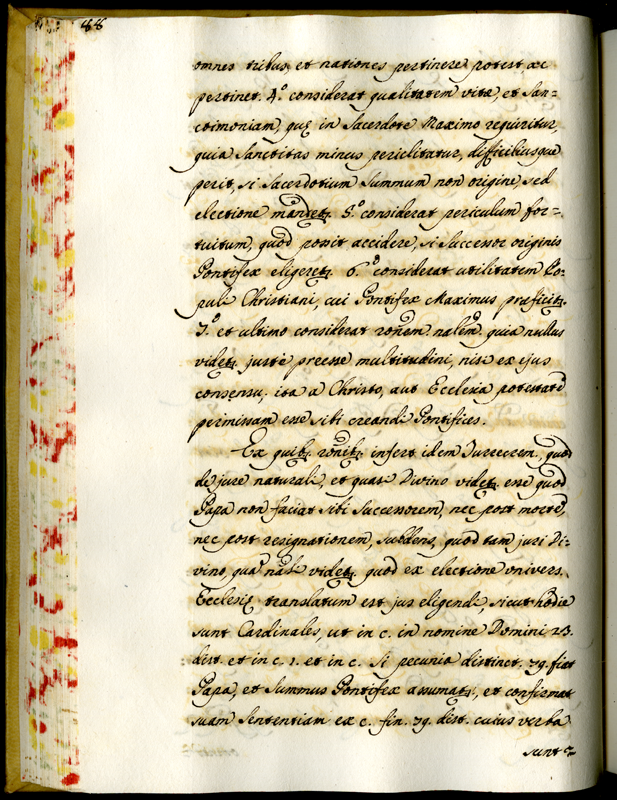 88
omnes tribus, et nationes pertinere potest, ac
pertinet. 4.º considerat qualitatem vitæ, et San=
ctimoniam, quę in Sacerdote Maximo requiritur,
quia Sanctitas minus periclitatur, difficiliusque
perit, si Sacerdotium Summum non origine, sed
electione mandet. 5.º considerat periculum for=
tuitum, quod possit accidere, si Successor originis
Pontifex eligeret. 6.º considerat utilitatem Po=
puli Christiani, cui Pontifex Maximus præficit.
7.º et ultimo considerat roñem nalem, quia nullus
videt. justè preesse multitudini, nisi ex ejus
consensu, ita a Christo, aut Ecclesia potestatē
permissam esse sibi creandi Pontifices.
Ex quib. roñib. infert idem Turrecrem., quod
de jure naturali, et quasi Divino videt. esse quod
Papa non faciat sibi Successorem, nec post mortē,
nec post resignationem, subdens, quod tam juri Di=
vino, quā nāli videt. quod ex electione vnivers.
Ecclesię translatum est jus eligendi, sicut hodie
sunt Cardinales, ut in c. in nomine Domini 23.
dist. et in c. 1. et in c. Si pecunia distinct. 79. fiat
Papa, et Summus Pontifex assumat., et confirmat
suam Sententiam ex c. fin. 79. dist. cuius verba
sunt